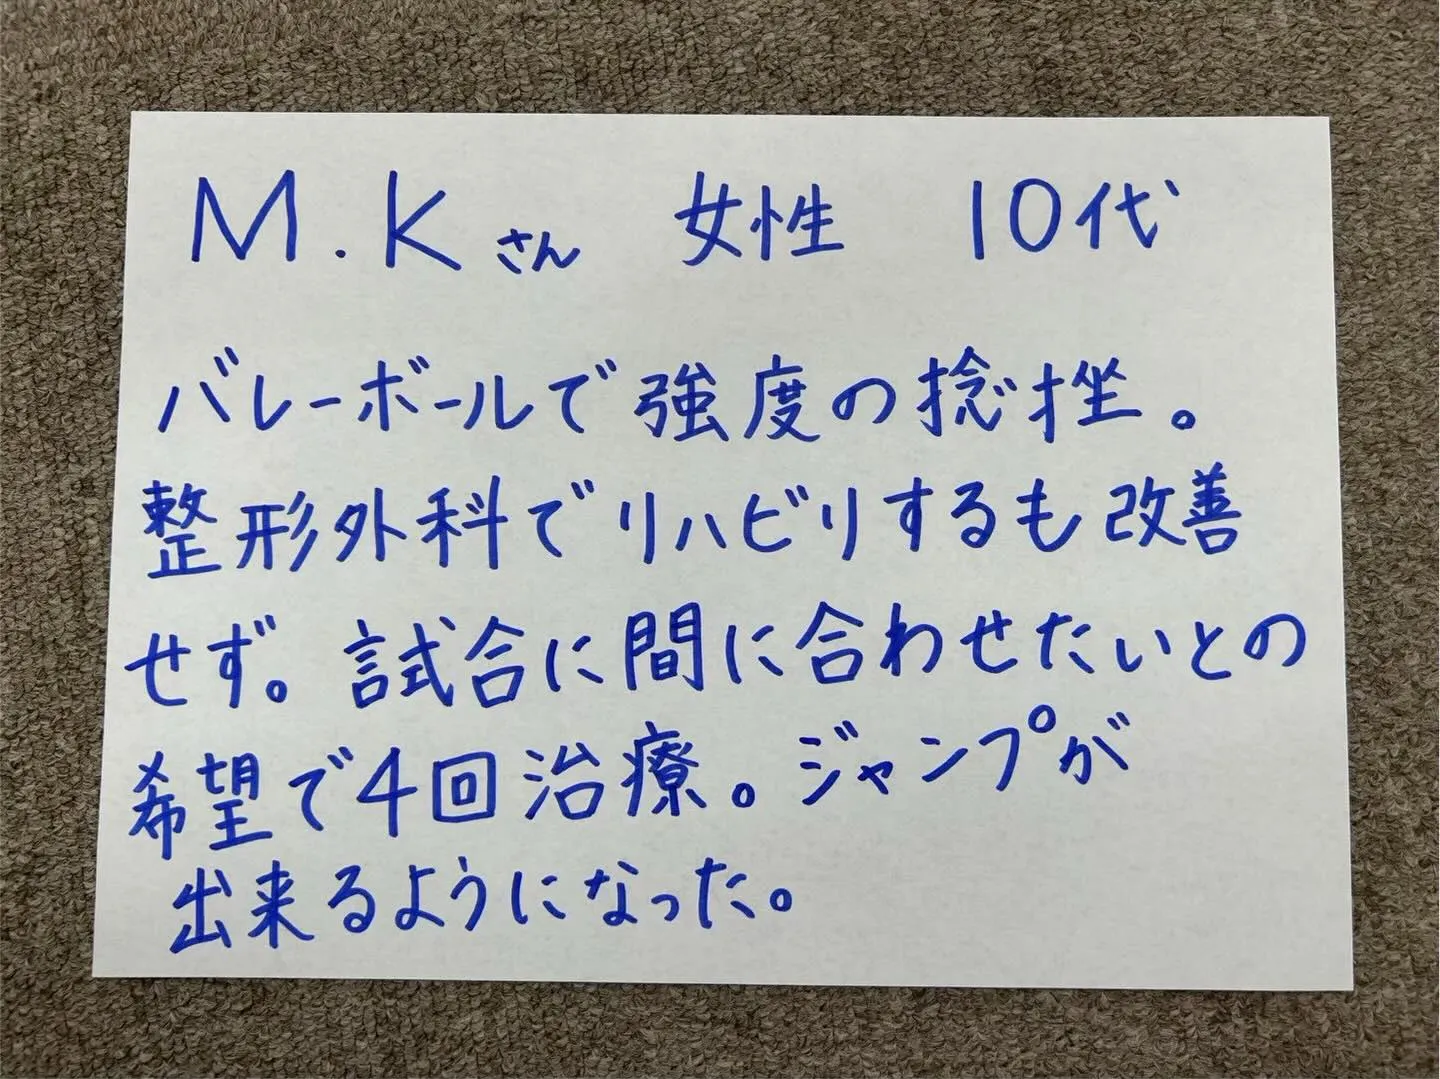 M.Kさん 女性 10代
バレーボールで強度の捻挫。
整形外科でリハビリするも改善
せず。試合に間に合わせたいとの
希望で4回治療。ジャンプが
出来るようになった。